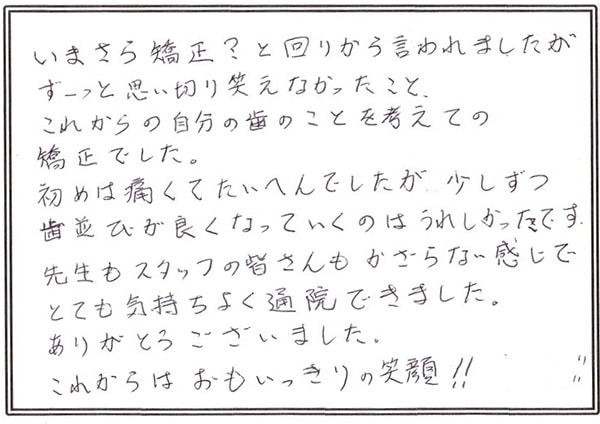 いまさら矯正?と回りから言われましたが
ずーっと思い切り笑えなかったこと、
これからの自分の歯のことを考えての
矯正でした。
初めは痛くてたいへんでしたが、少しずつ
歯並びが良くなっていくのはうれしかったです。
先生もスタッフの皆さんもかざらない感じで
とても気持ちよく通院できました。
ありがとうございました。
これからはおもいっきりの笑顔!!